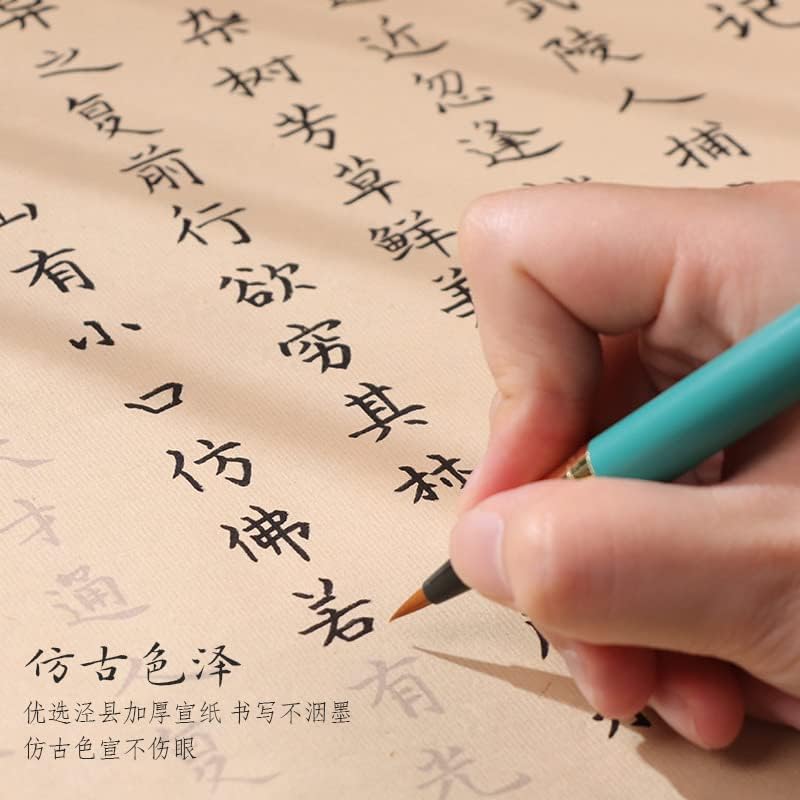 记
武陵人捕
近忽逢
杂树芳草鲜美
异之复前行欲穷其林
山有小口仿佛若有光
才通人复
仿古色泽
优选泾县加厚宣纸 书写不洇墨
仿古色宣不伤眼